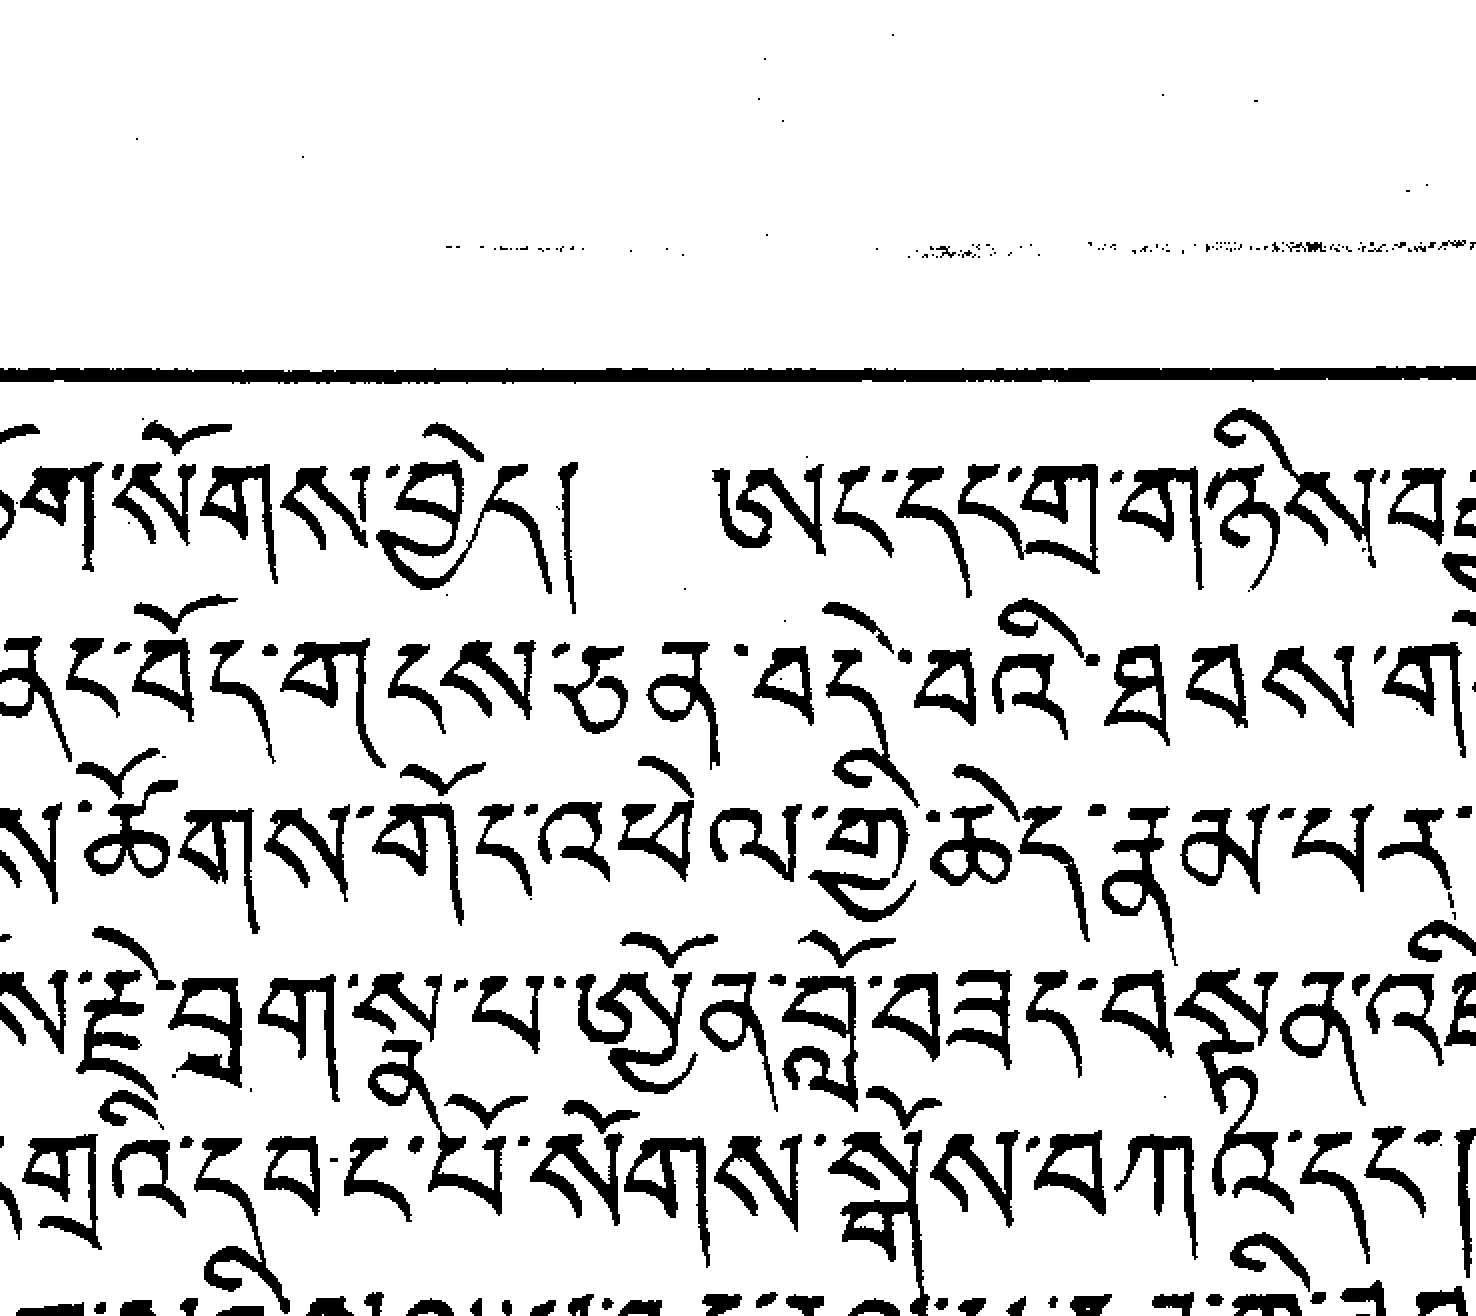 ཅོག་སོགས་བྱེད། ཨང་དང་གྲ་གཉིས་བ
ནང་བོད་གངས་ཅན་བདེ་བའི་ཐབས་ག
ས་ཚོགས་གོང་འཕེལ་གྱི་ཆེད་རྣམ་པར་
ས་རྗེ་བྲག་སྣ་པ་ཨྱོན་བློ་བཟང་བསྟན་འཛི
གྲའི་དབང་པོ་སོགས་སྒོས་བཀའི་དང་།